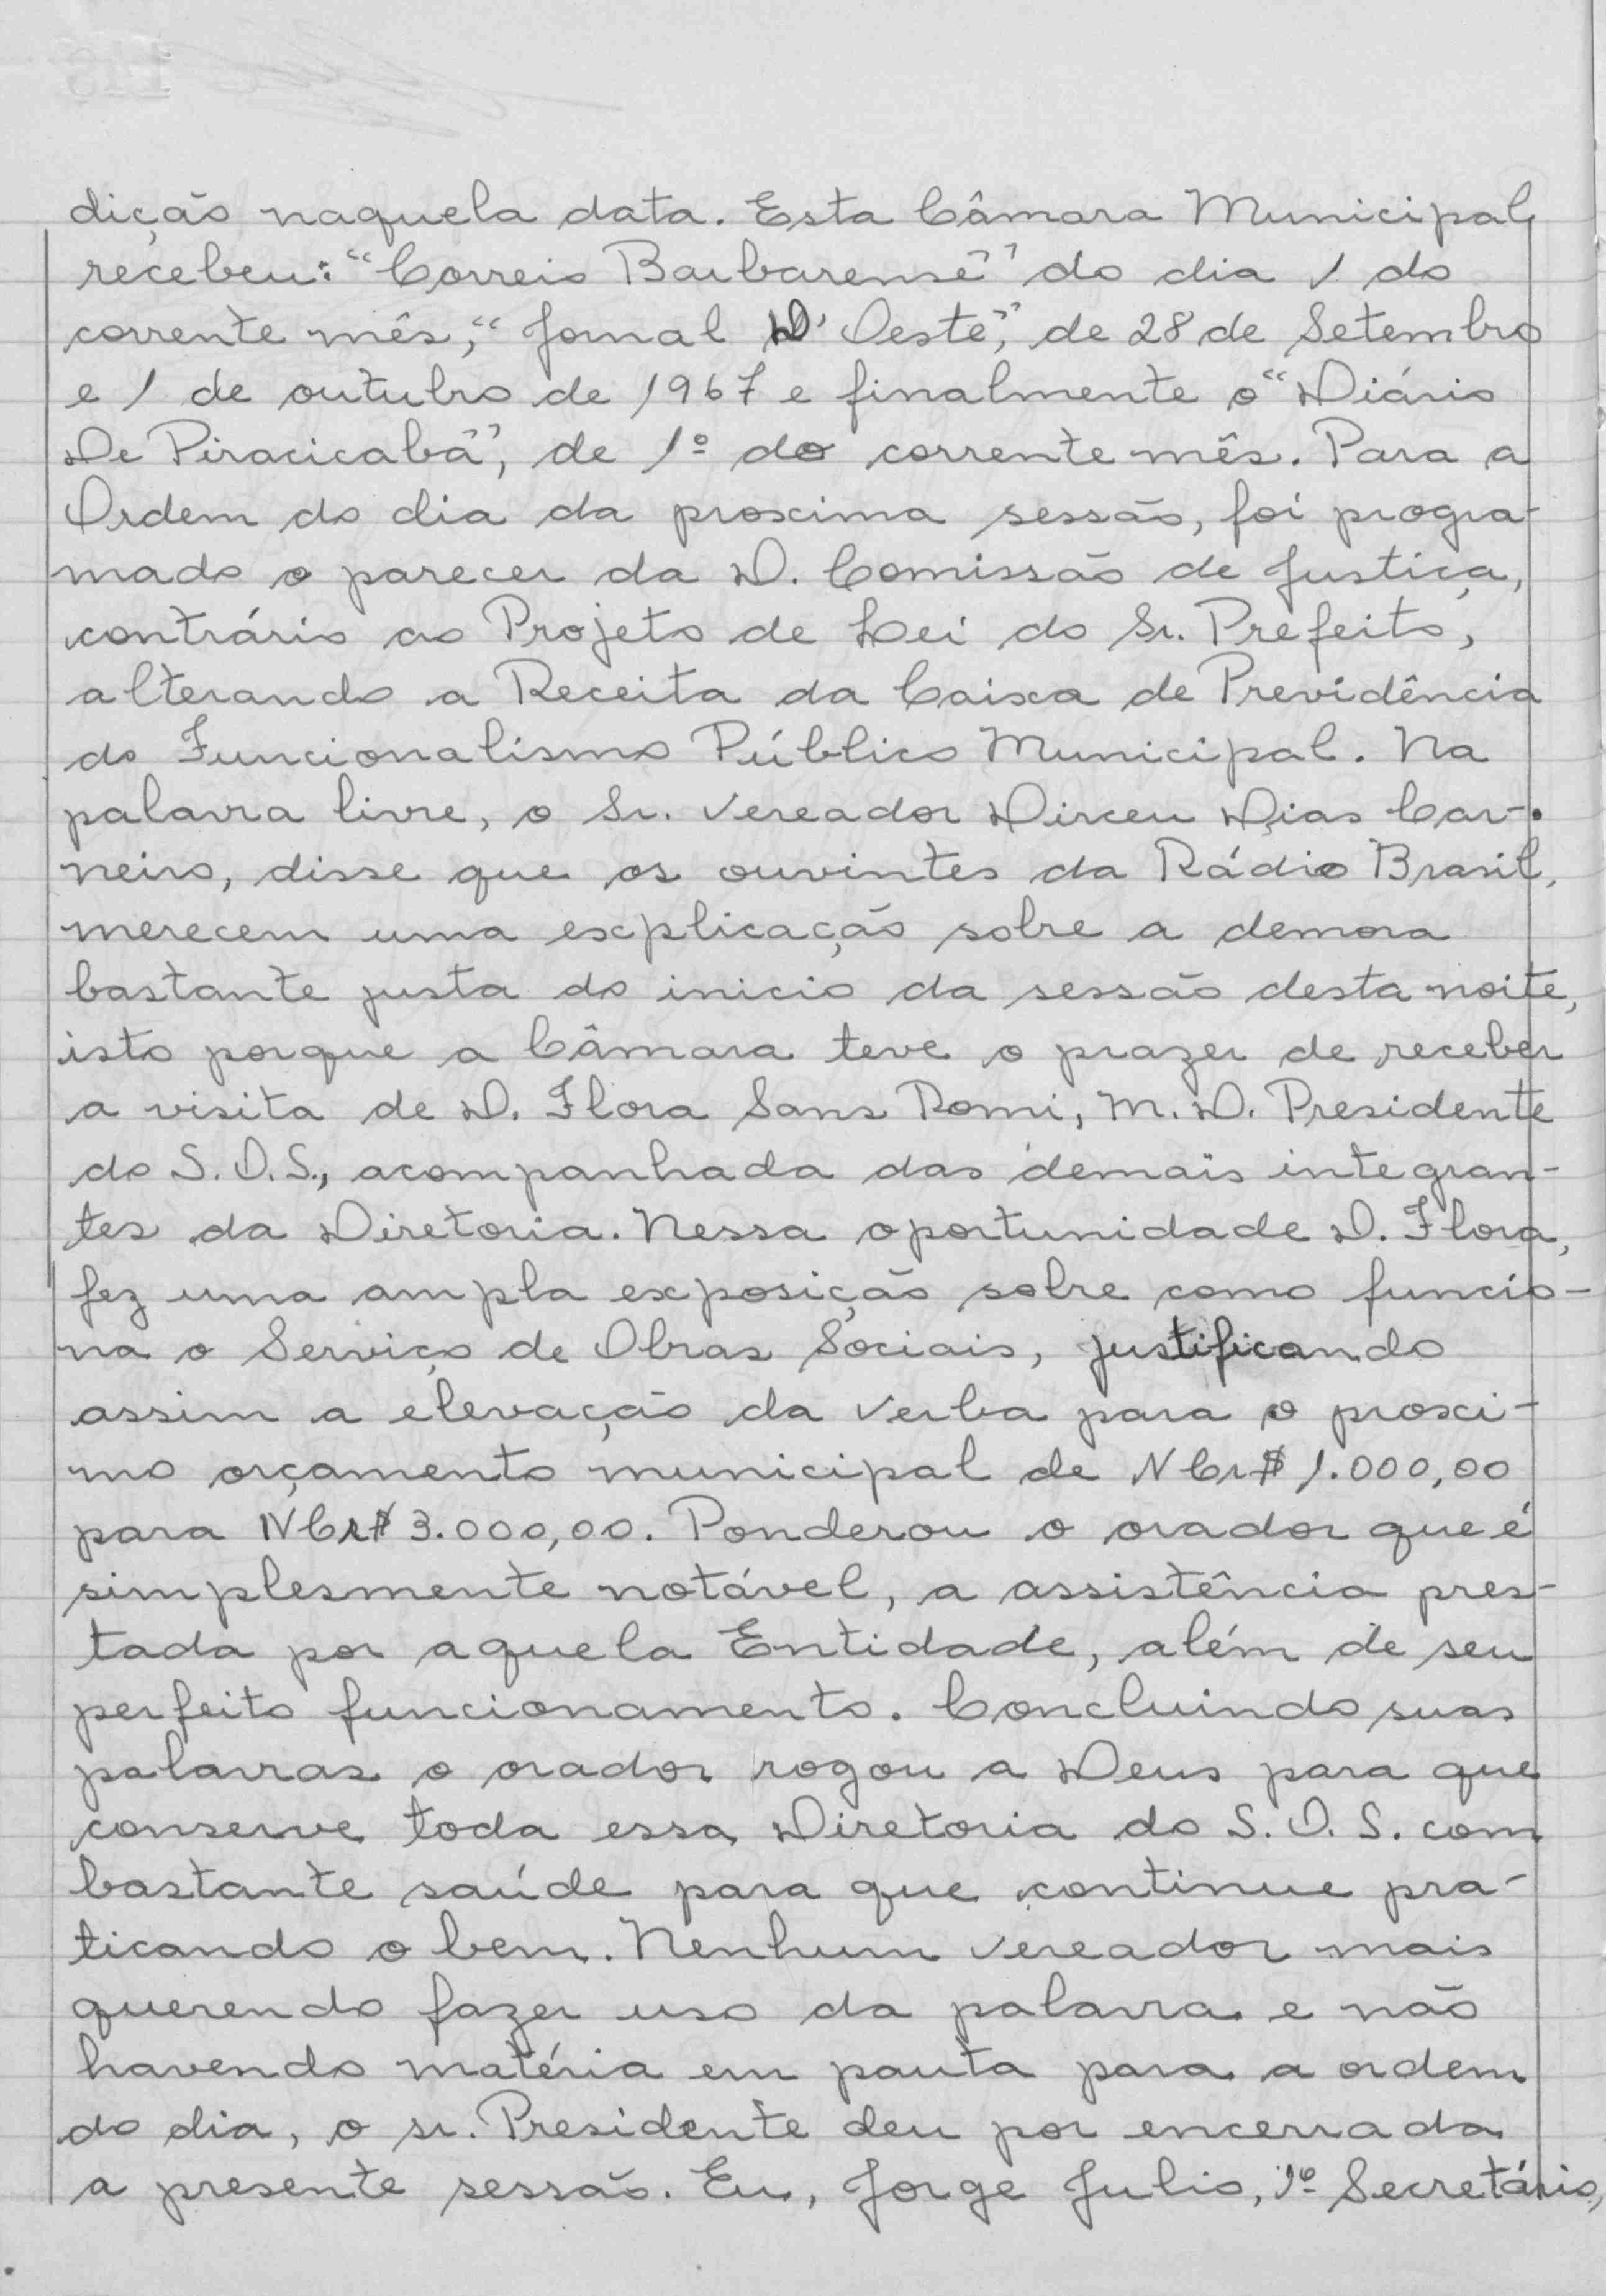 dição naquela data. Esta Câmara Municipal
recebeu: "Correio Barbarense" do dia 1 do
corrente mês, "Jornal D'Oeste", de 28 de Setembro
e 1 de outubro de 1967 e finalmente o "Diário
De Piracicaba", de 1º do corrente mês. Para a
Ordem do dia da proxima sessão, foi progra-
mado o parecer da D. Comissão de Justiça,
contrário ao Projeto de Lei do Sr. Prefeito,
alterando a Receita da Caixa de Previdência
do Funcionalismo Público Municipal. Na
palavra livre, o Sr. Vereador Dirceu Dias Car-
neiro, disse que os ouvintes da Rádio Brasil,
merecem uma explicação sobre a demora
bastante justa do inicio da sessão desta noite,
isto porque a Câmara teve o prazer de receber
a visita de D. Flora Sans Romi, M. D. Presidente
do S. O. S., acompanhada das demais integran-
tes da Diretoria. Nessa oportunidade D. Flora,
fez uma ampla exposição sobre como funcio-
na o Serviço de Obras Sociais, justificando
assim a elevação da verba para o proxi-
mo orçamento municipal de NCr$ 1.000,00
para NCr$ 3.000,00. Ponderou o orador que é
simplesmente notável, a assistência pres-
tada por aquela Entidade, além de seu
perfeito funcionamento. Concluindo suas
palavras o orador rogou a Deus para que
conserve toda essa Diretoria do S. O. S. com
bastante saúde para que continue pra-
ticando o bem. Nenhum vereador mais
querendo fazer uso da palavra e não
havendo matéria em pauta para a ordem
do dia, o sr. Presidente deu por encerrada
a presente sessão. Eu, Jorge Julio, 1º Secretário,